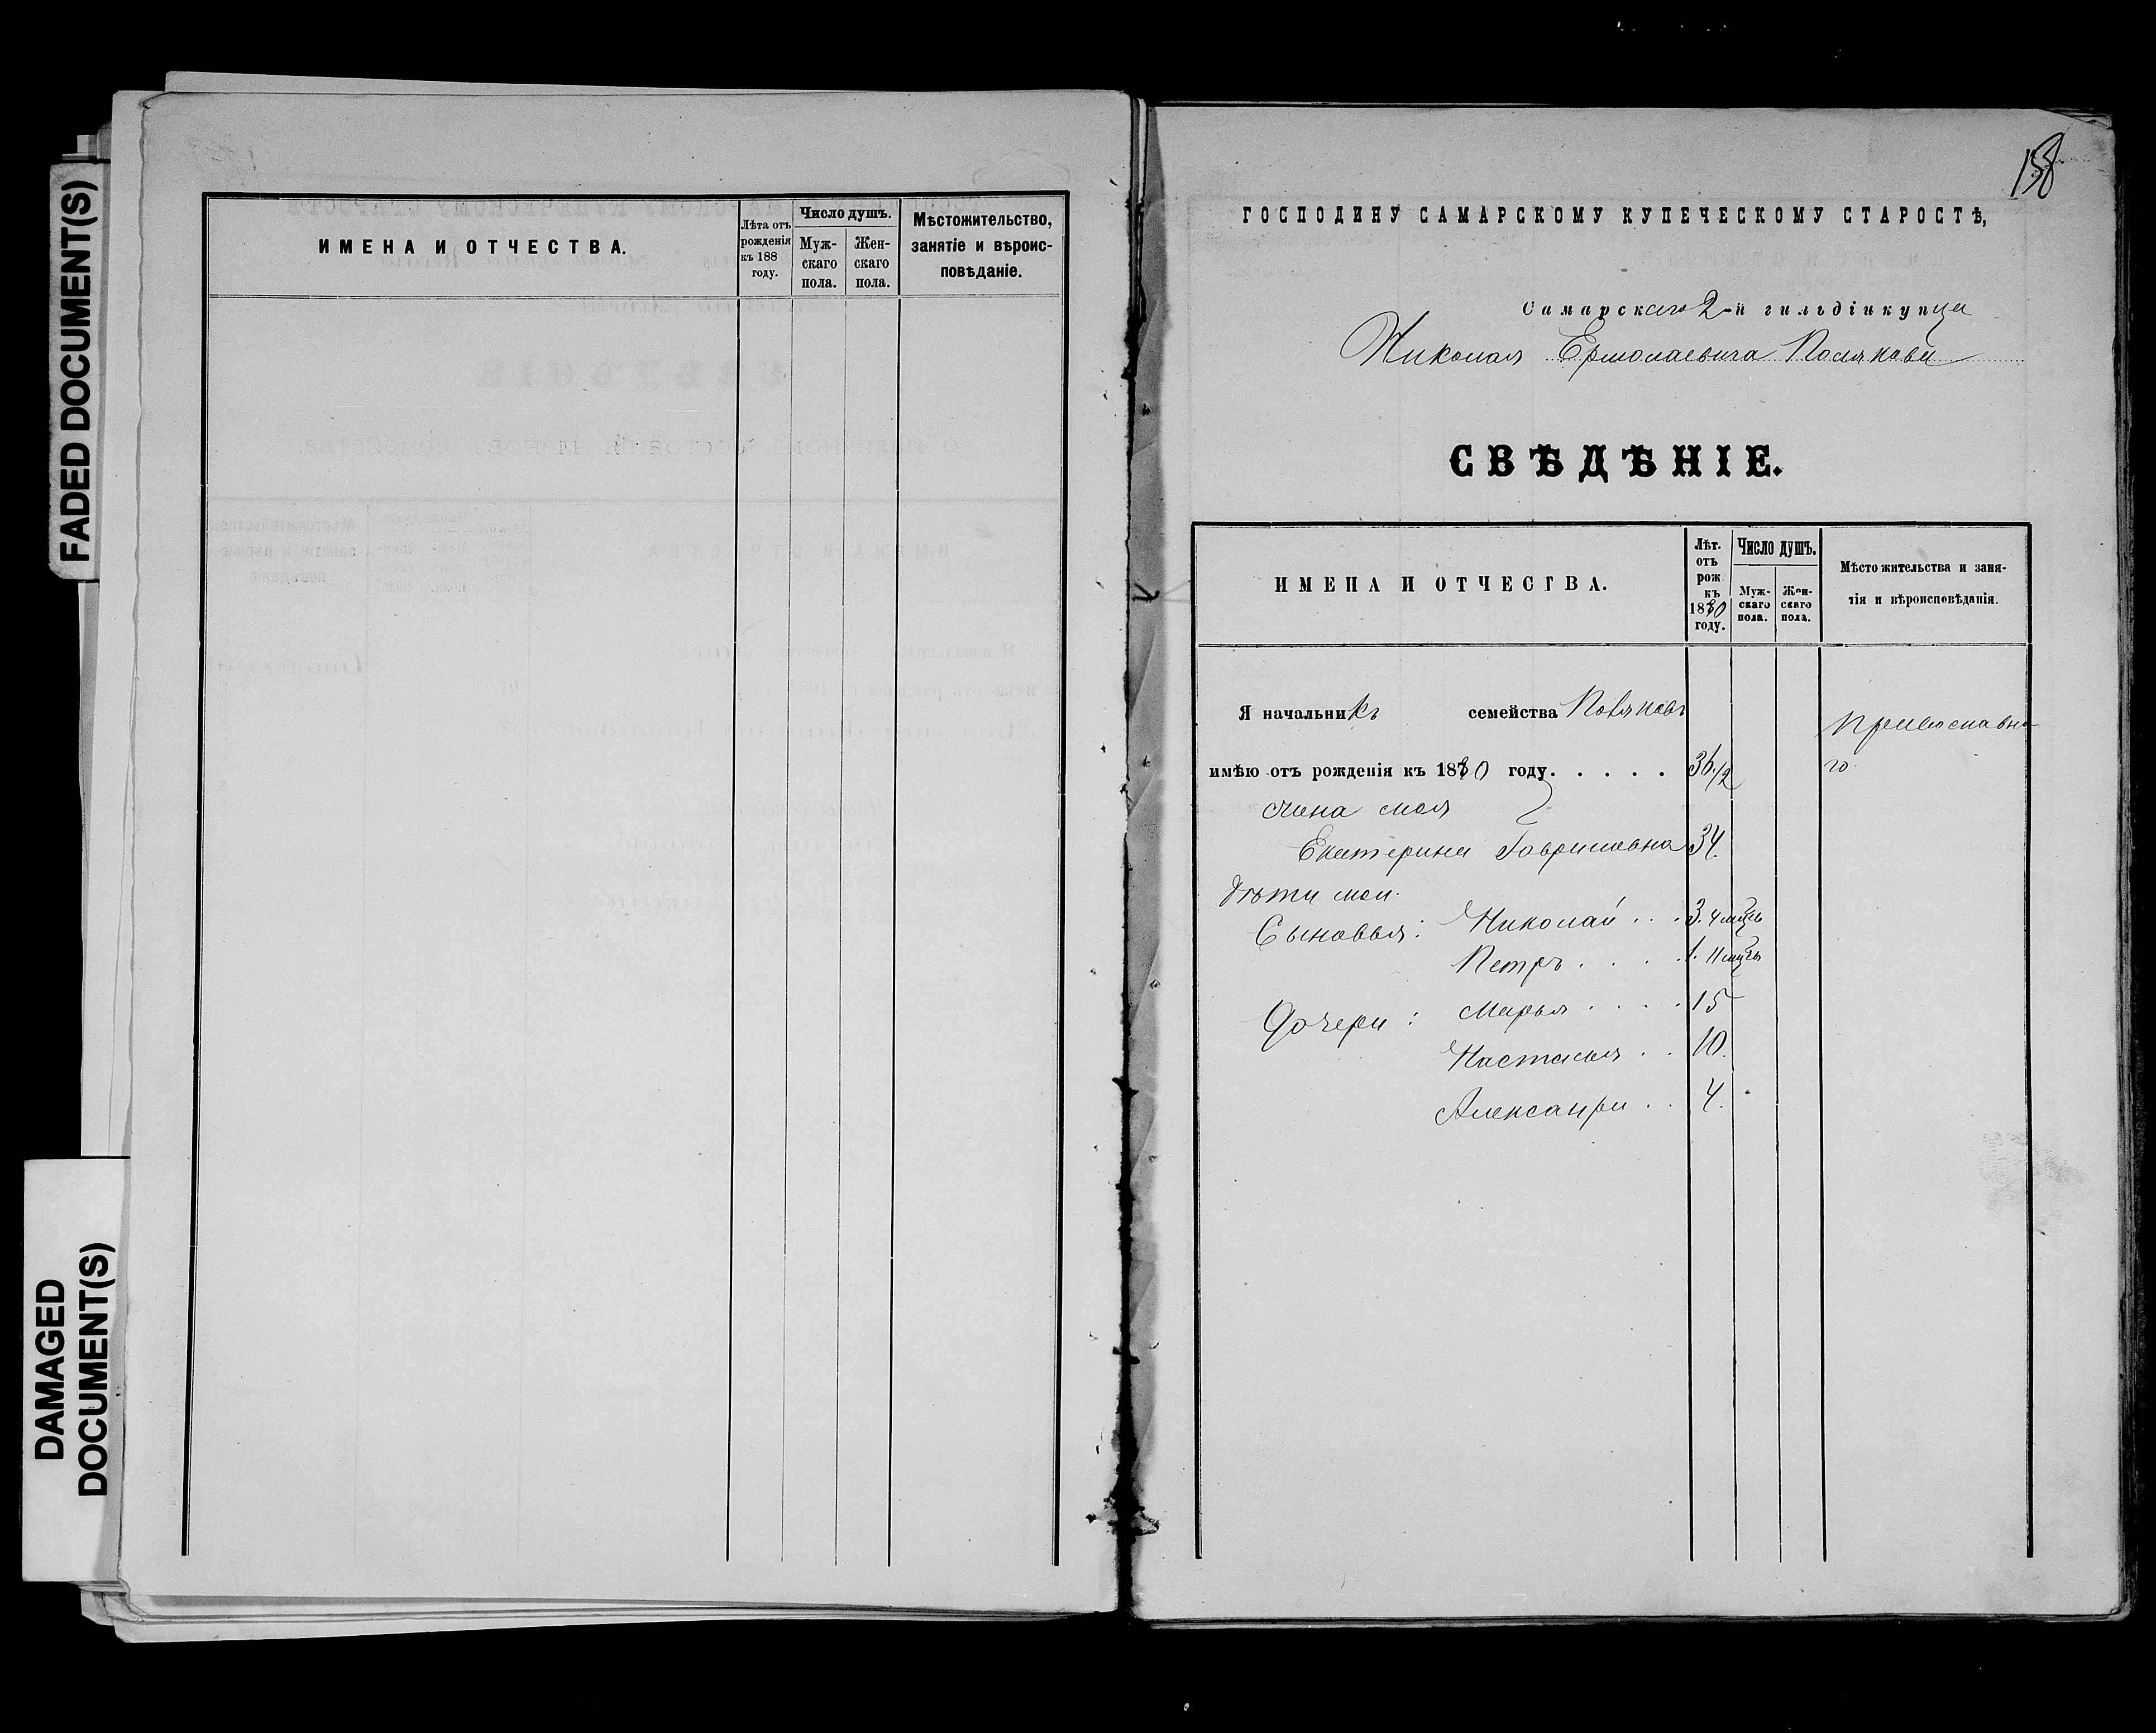 FADED DOCUMENT(S)
DAMAGED
DOCUMENT(S)
ИМЕНА И ОТЧЕСТВА.
Лѣта отъ
рожденія
къ 188
году.
Число душъ.
Муж-
скаго
пола.
Жен-
скаго
пола.
Мѣстожительство,
занятіе и вѣроис-
повѣданіе.
158
ГОСПОДИНУ САМАРСКОМУ КУПЕЧЕСКОМУ СТАРОСТѢ,
Самарскаго 2-й гильдіи купца
Николая Ермолаевича Полякова
СВѢДѢНІЕ.
ИМЕНА И ОТЧЕСТВА.
Лѣт.
отъ
рож
къ
1880
году.
Число душъ.
Муж-
скаго
пола.
Жен-
скаго
пола.
Мѣсто жительства и заня-
тія и вѣроисповѣданія.
Я начальникъ семейства Поляковъ
имѣю отъ рожденія къ 1880 году. . . . . 36 1/2
Православна
го
жена моя
Екатерина Гавриловна 34.
дѣти мои.
Сыновья: Николай . . . 3. 4 мѣцъ
Петръ . . . . 1. 11 мѣцъ
Дочери: Марья . . . . 15
Настасья . . 10.
Александра . . 4.